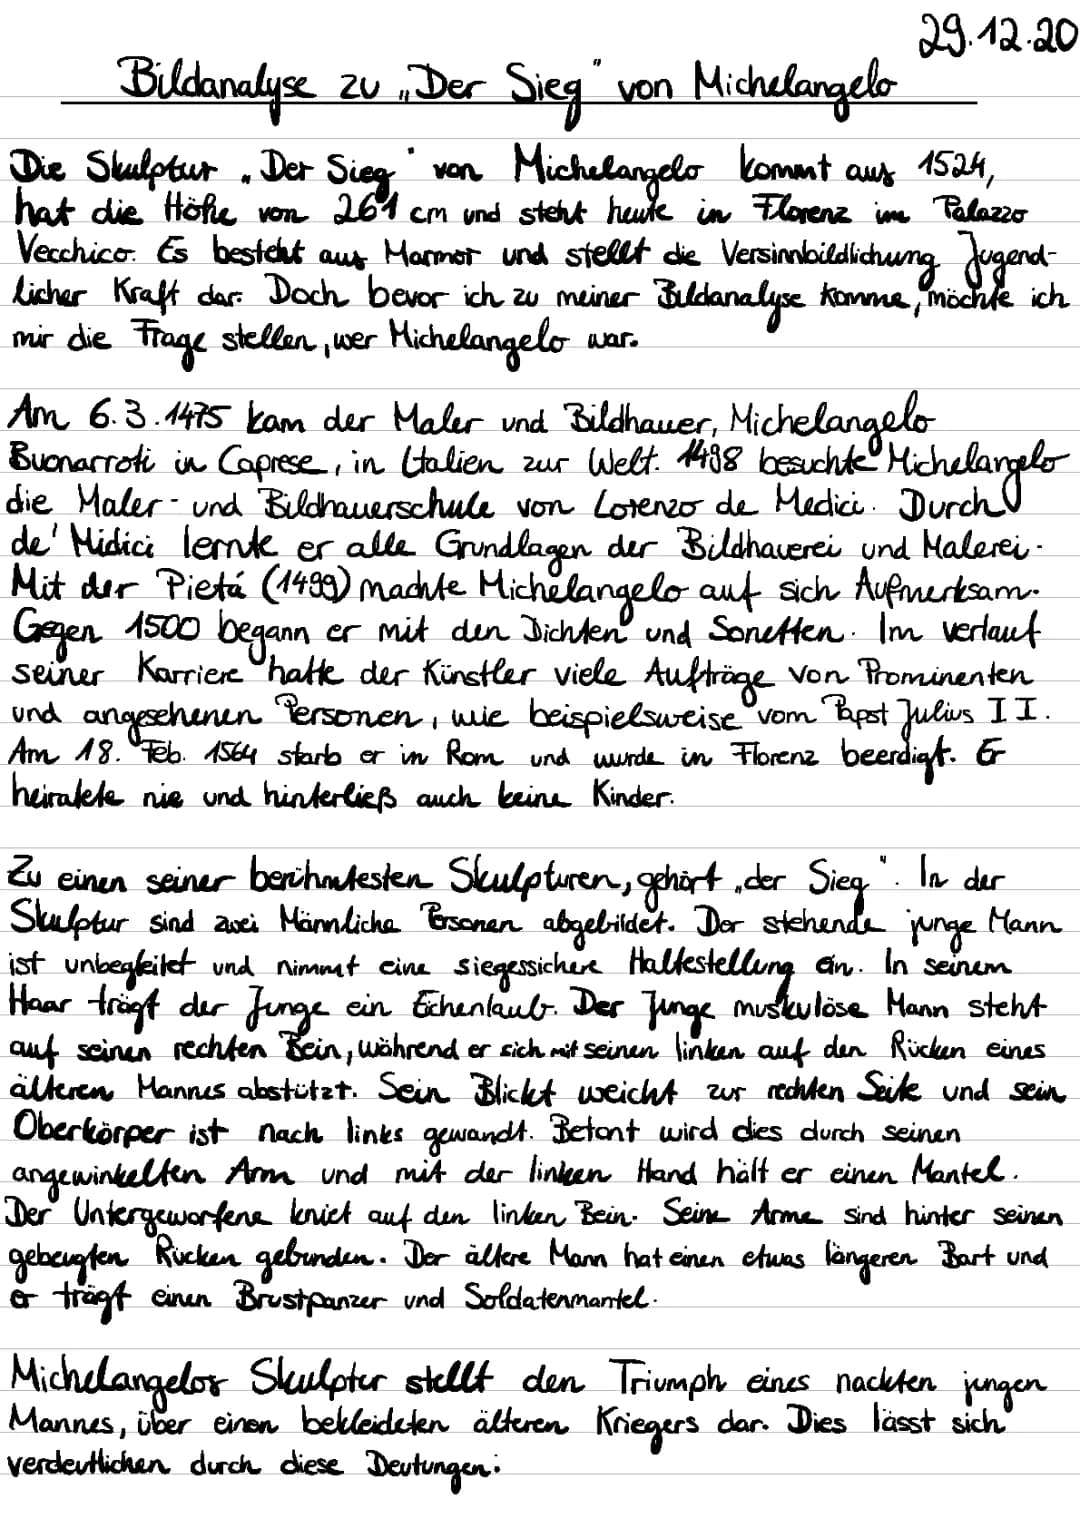 29.12.20
Bildanalyse zu „Der Sieg" von Michelangelo
Die Skulptur „Der Sieg" von Michelangelo kommt aus 1524,
hat die Höhe von 261 cm und steht heute in Florenz im Palazzo
Vecchico. Es besteht aus Marmor und stellt die Versinnbildlichung Jugend-
licher Kraft dar. Doch bevor ich zu meiner Bildanalyse komme, möchte ich
mir die Frage stellen, wer Michelangelo war.
Am 6.3.1475 kam der Maler und Bildhauer, Michelangelo
Buonarroti in Caprese, in Italien zur Welt. 1498 besuchte Michelangelo
die Maler- und Bildhauerschule von Lorenzo de Medici. Durch
de' Midici lernte er alle Grundlagen der Bildhauerei und Malerei.
Mit der Pietá (1499) machte Michelangelo auf sich Aufmerksam.
Gegen 1500 begann er mit den Dichten und Sonetten. Im verlauf
seiner Karriere hatte der Künstler viele Aufträge von Prominenten
und angesehenen Personen, wie beispielsweise vom Papst Julius II.
Am 18. Feb. 1564 starb er in Rom und wurde in Florenz beerdigt. Er
heiratete nie und hinterließ auch keine Kinder.
Zu einen seiner berühmtesten Skulpturen, gehört „der Sieg". In der
Skulptur sind zwei Männliche Personen abgebildet. Der stehende junge Mann
ist unbegleitet und nimmt eine siegessichere Haltestellung ein. In seinem
Haar trägt der Junge ein Echenlaub. Der Junge muskulöse Mann steht
auf seinen rechten Bein, während er sich mit seinen linken auf den Rücken eines
älteren Mannes abstützt. Sein Blickt weicht zur rechten Seite und sein
Oberkörper ist nach links gewandt. Betont wird dies durch seinen
angewinkelten Arm und mit der linken Hand hält er einen Mantel.
Der Untergeworfene kniet auf den linken Bein. Seine Arme sind hinter seinen
gebeugten Rücken gebunden. Der ältere Mann hat einen etwas längeren Bart und
er trägt einen Brustpanzer und Soldatenmantel.
Michelangelos Skulptur stellt den Triumph eines nackten jungen
Mannes, über einen bekleideten älteren Kriegers dar. Dies lässt sich
verdeutlichen durch diese Deutungen: